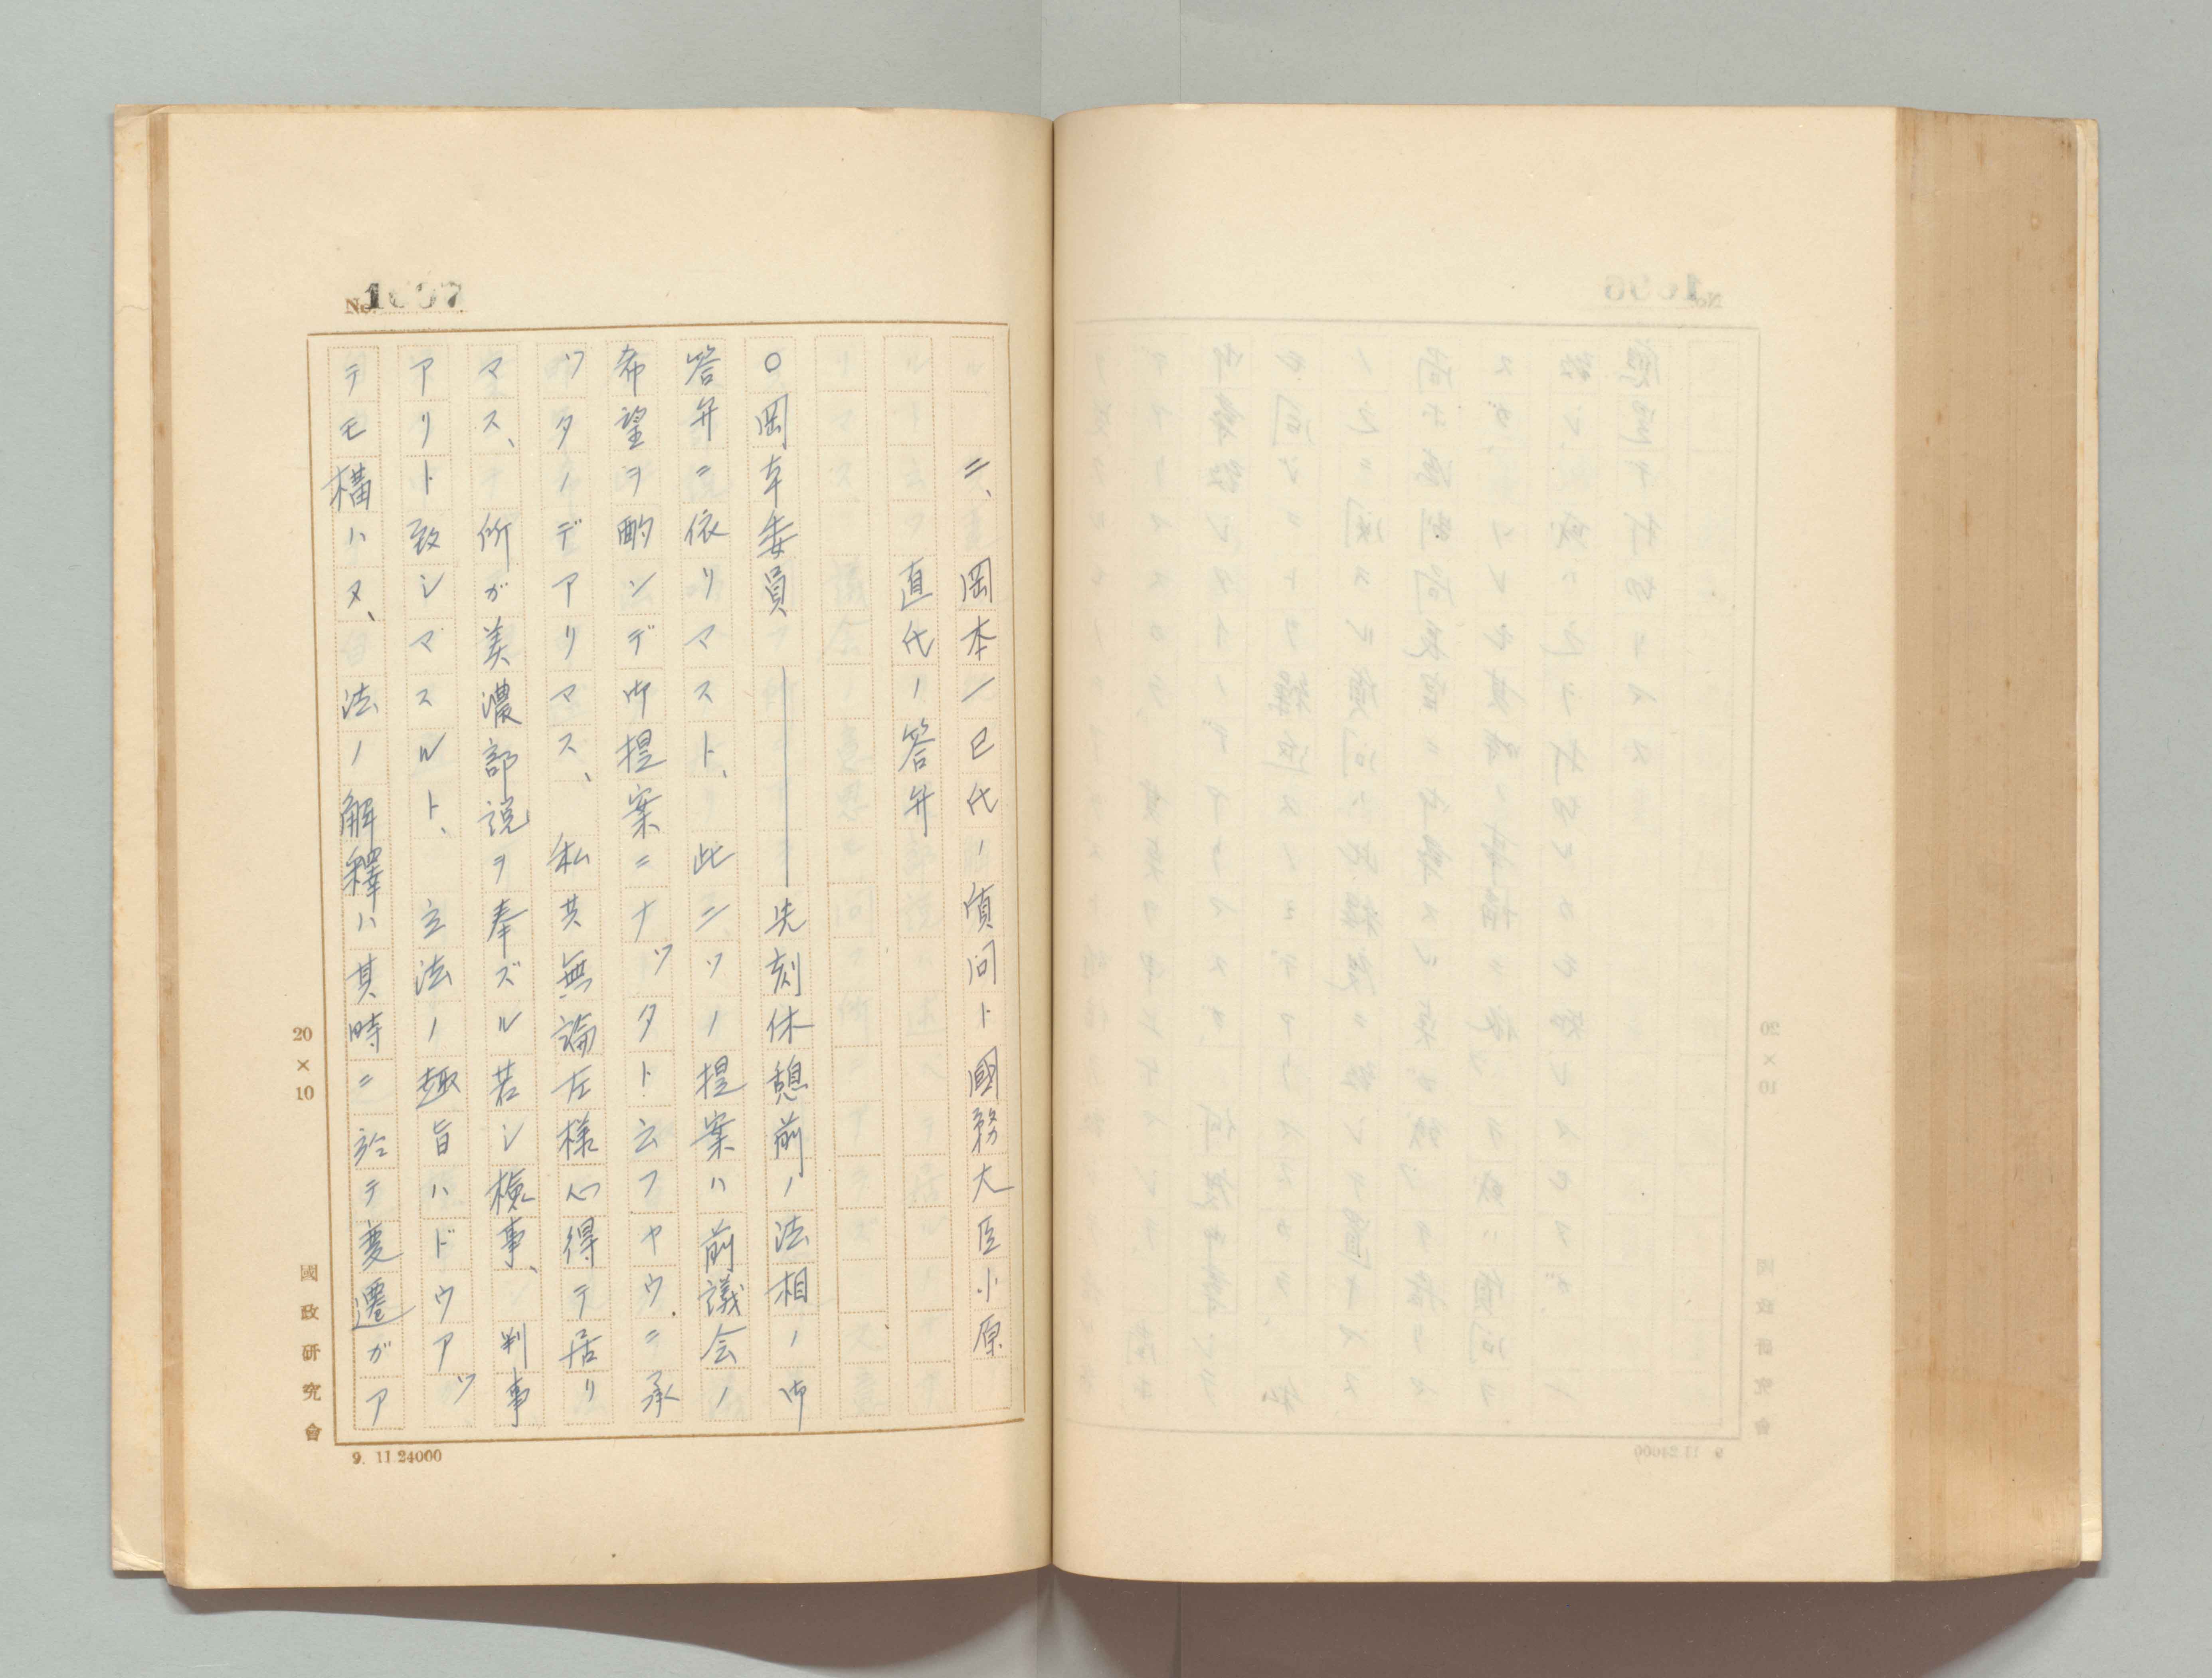 No. 1097
二、岡本一巳代ノ質問ト國務大臣小原
直代ノ答弁
〇岡本委員――先刻休憩前ノ法相ノ御
答弁ニ依リマスト、此二ツノ提案ハ前議会ノ
希望ヲ酌ンデ御提案ニナツタト云フヤウニ承
ツタノデアリマス、私共無論左様心得テ居リ
マス、所ガ美濃部説ヲ奉ズル若シ檢事、判事
アリト致シマスルト、立法ノ趣旨ハドウアツ
テモ構ハヌ、法ノ解釋ハ其時ニ於テ変遷ガア
20×10
國政研究會
9. 11.24000